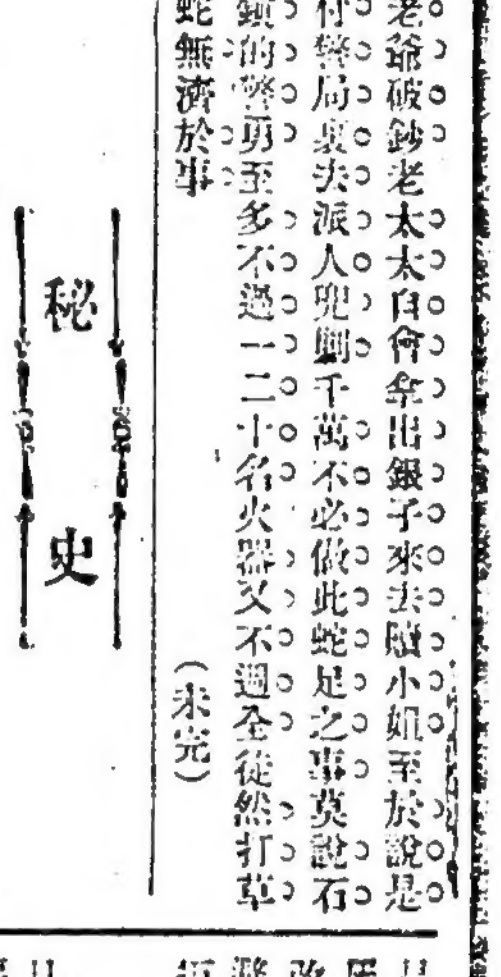 老爺破鈔老太太自會拿出銀子來去贖小姐至於說是
付警局裏去派人兜剿千萬不必做此蛇足之事莫說石
鎮的警勇至多不過一二十名火器又不週全徒然打草
蛇無濟於事
(未完)
秘史